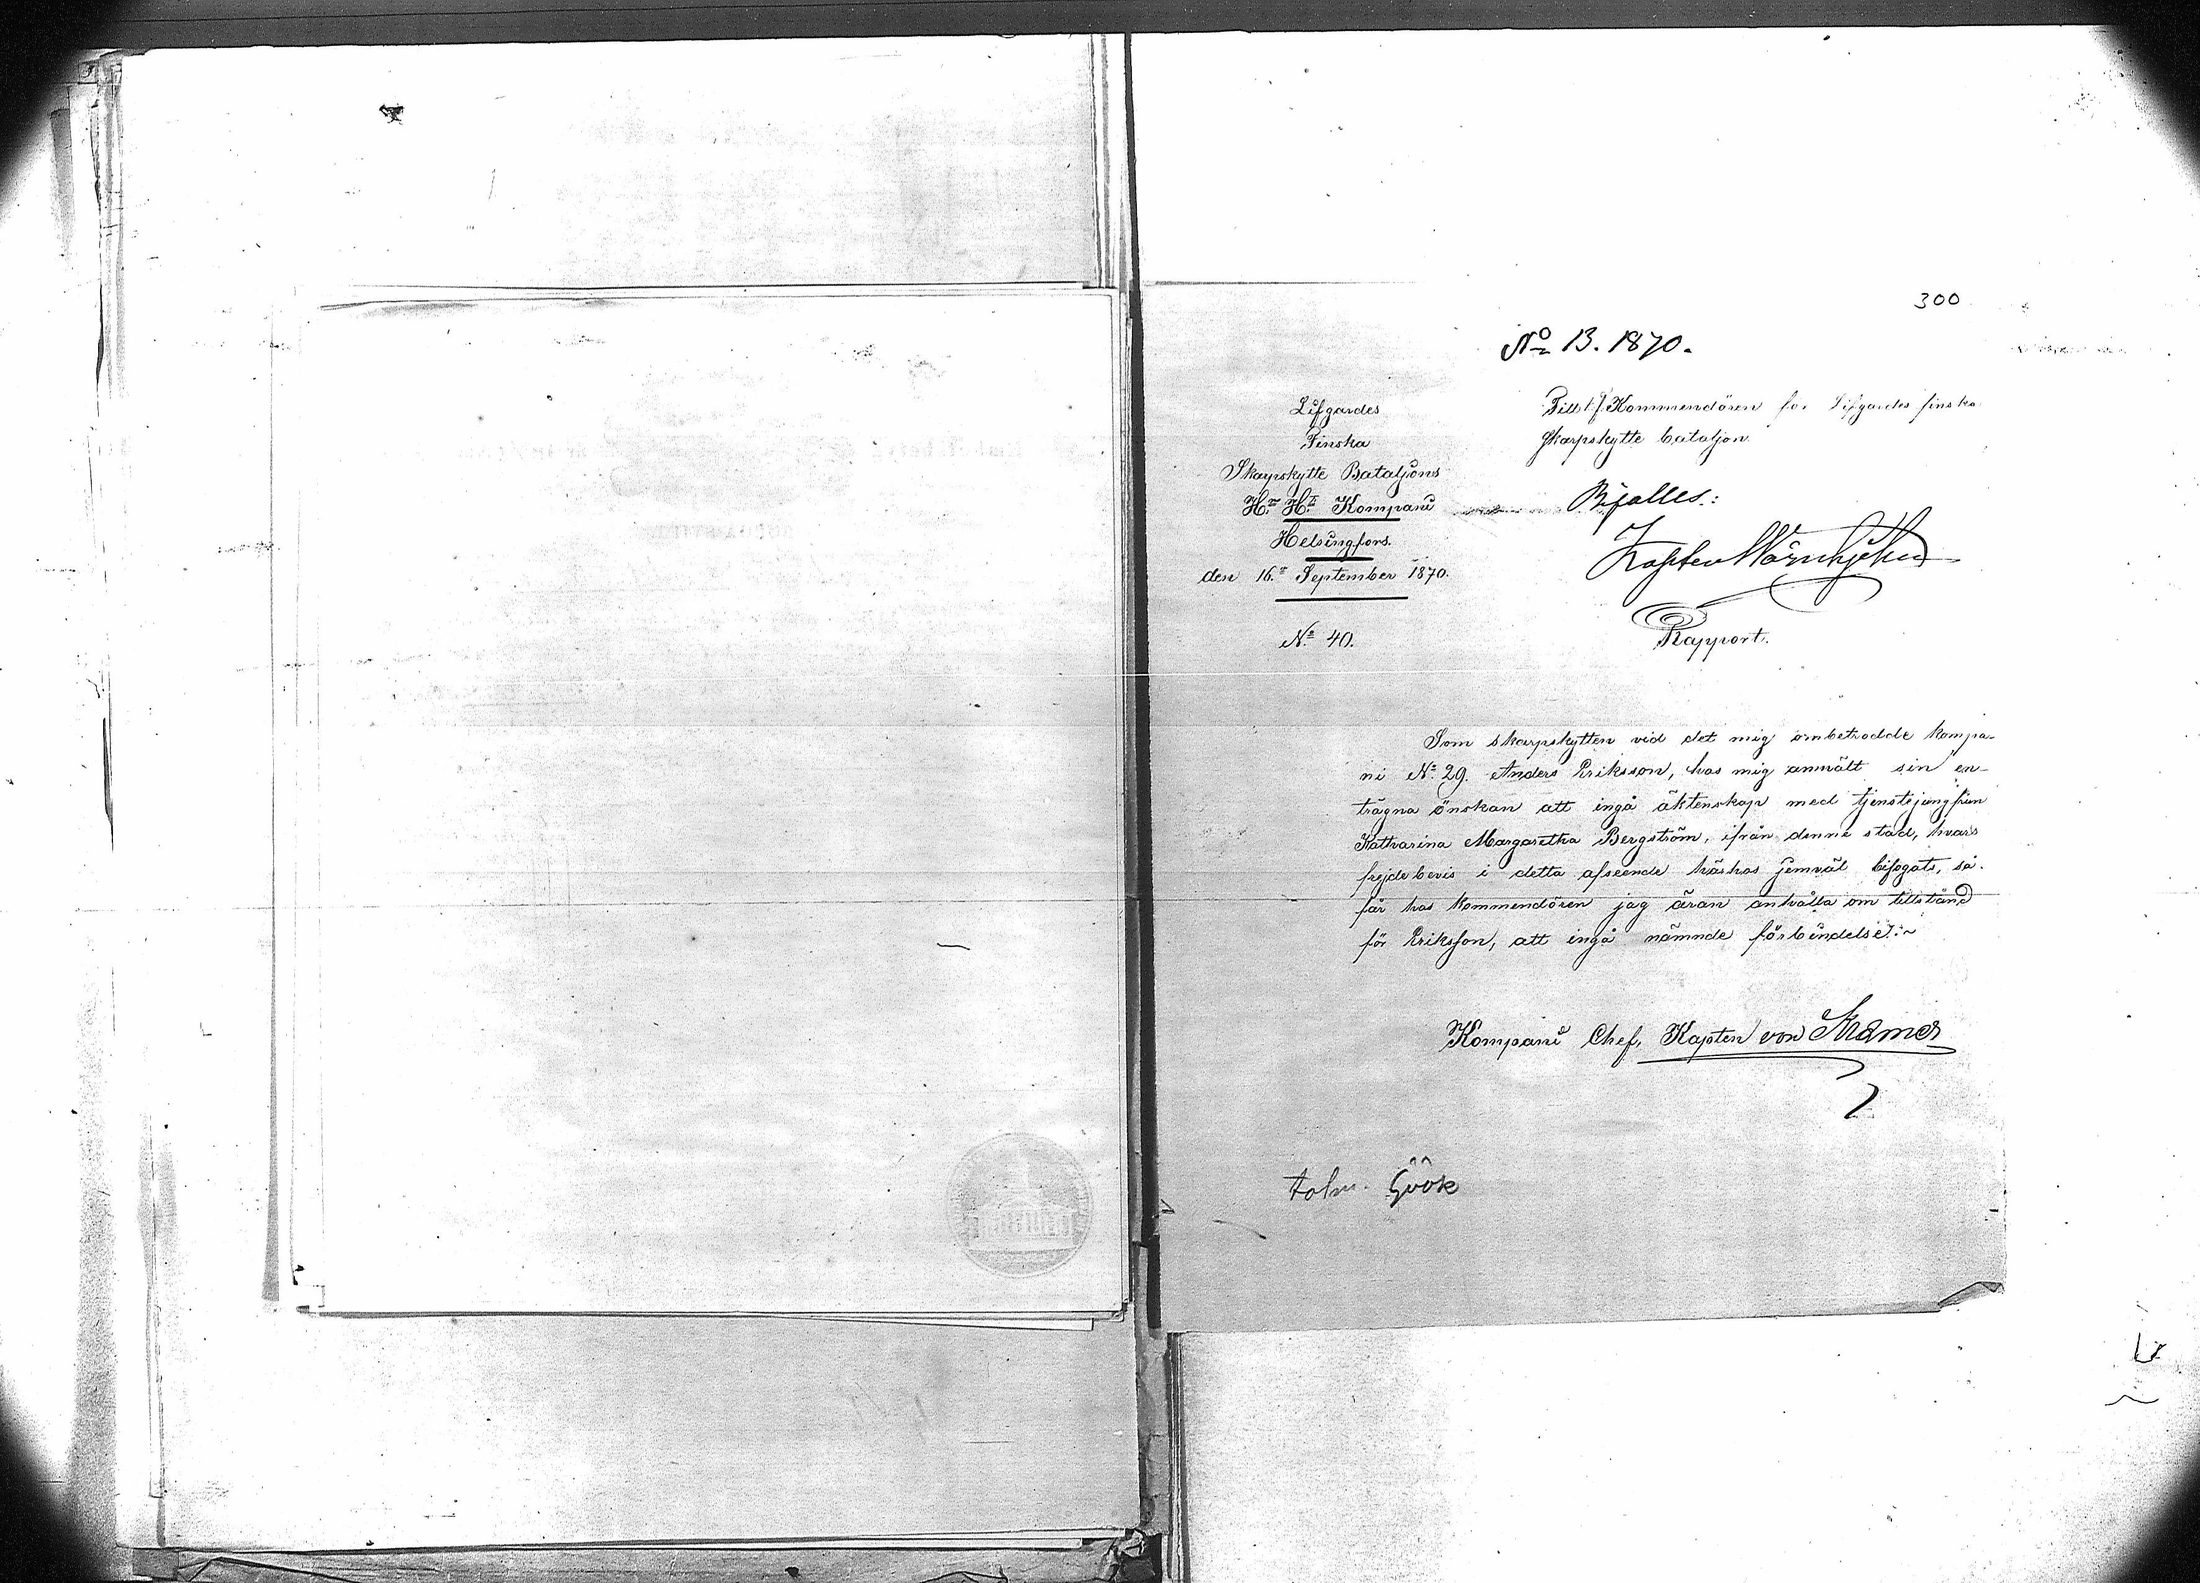 300
No 13. 1870.
Lifgardes
Finska
Skarpskytte Bataljons
H.s H.t Kompani
Helsingfors.
den 16.e September 1870.
No 40.
Tillf. Kommendören för Lifgardes finska
skarpskytte bataljon.
Bifalles:
Kapten
Rapport.
Som skarpskytten vid det mig ombetrodde kompa-
ni No 29. Anders Eriksson, hos mig anmält sin en-
trägna önskan att ingå äktenskap med tjenstejungfrun
Katharina Margaretha Bergström, ifrån denne stad, hvars
frejdebevis i detta afseende härhos jemväl bifogats, så
får hos Kommendören jag äran anhålla om tillstånd
för Eriksson, att ingå nämnde förbindelse.
Kompani Chef, Kapten von Kræmer
tolm. Göök